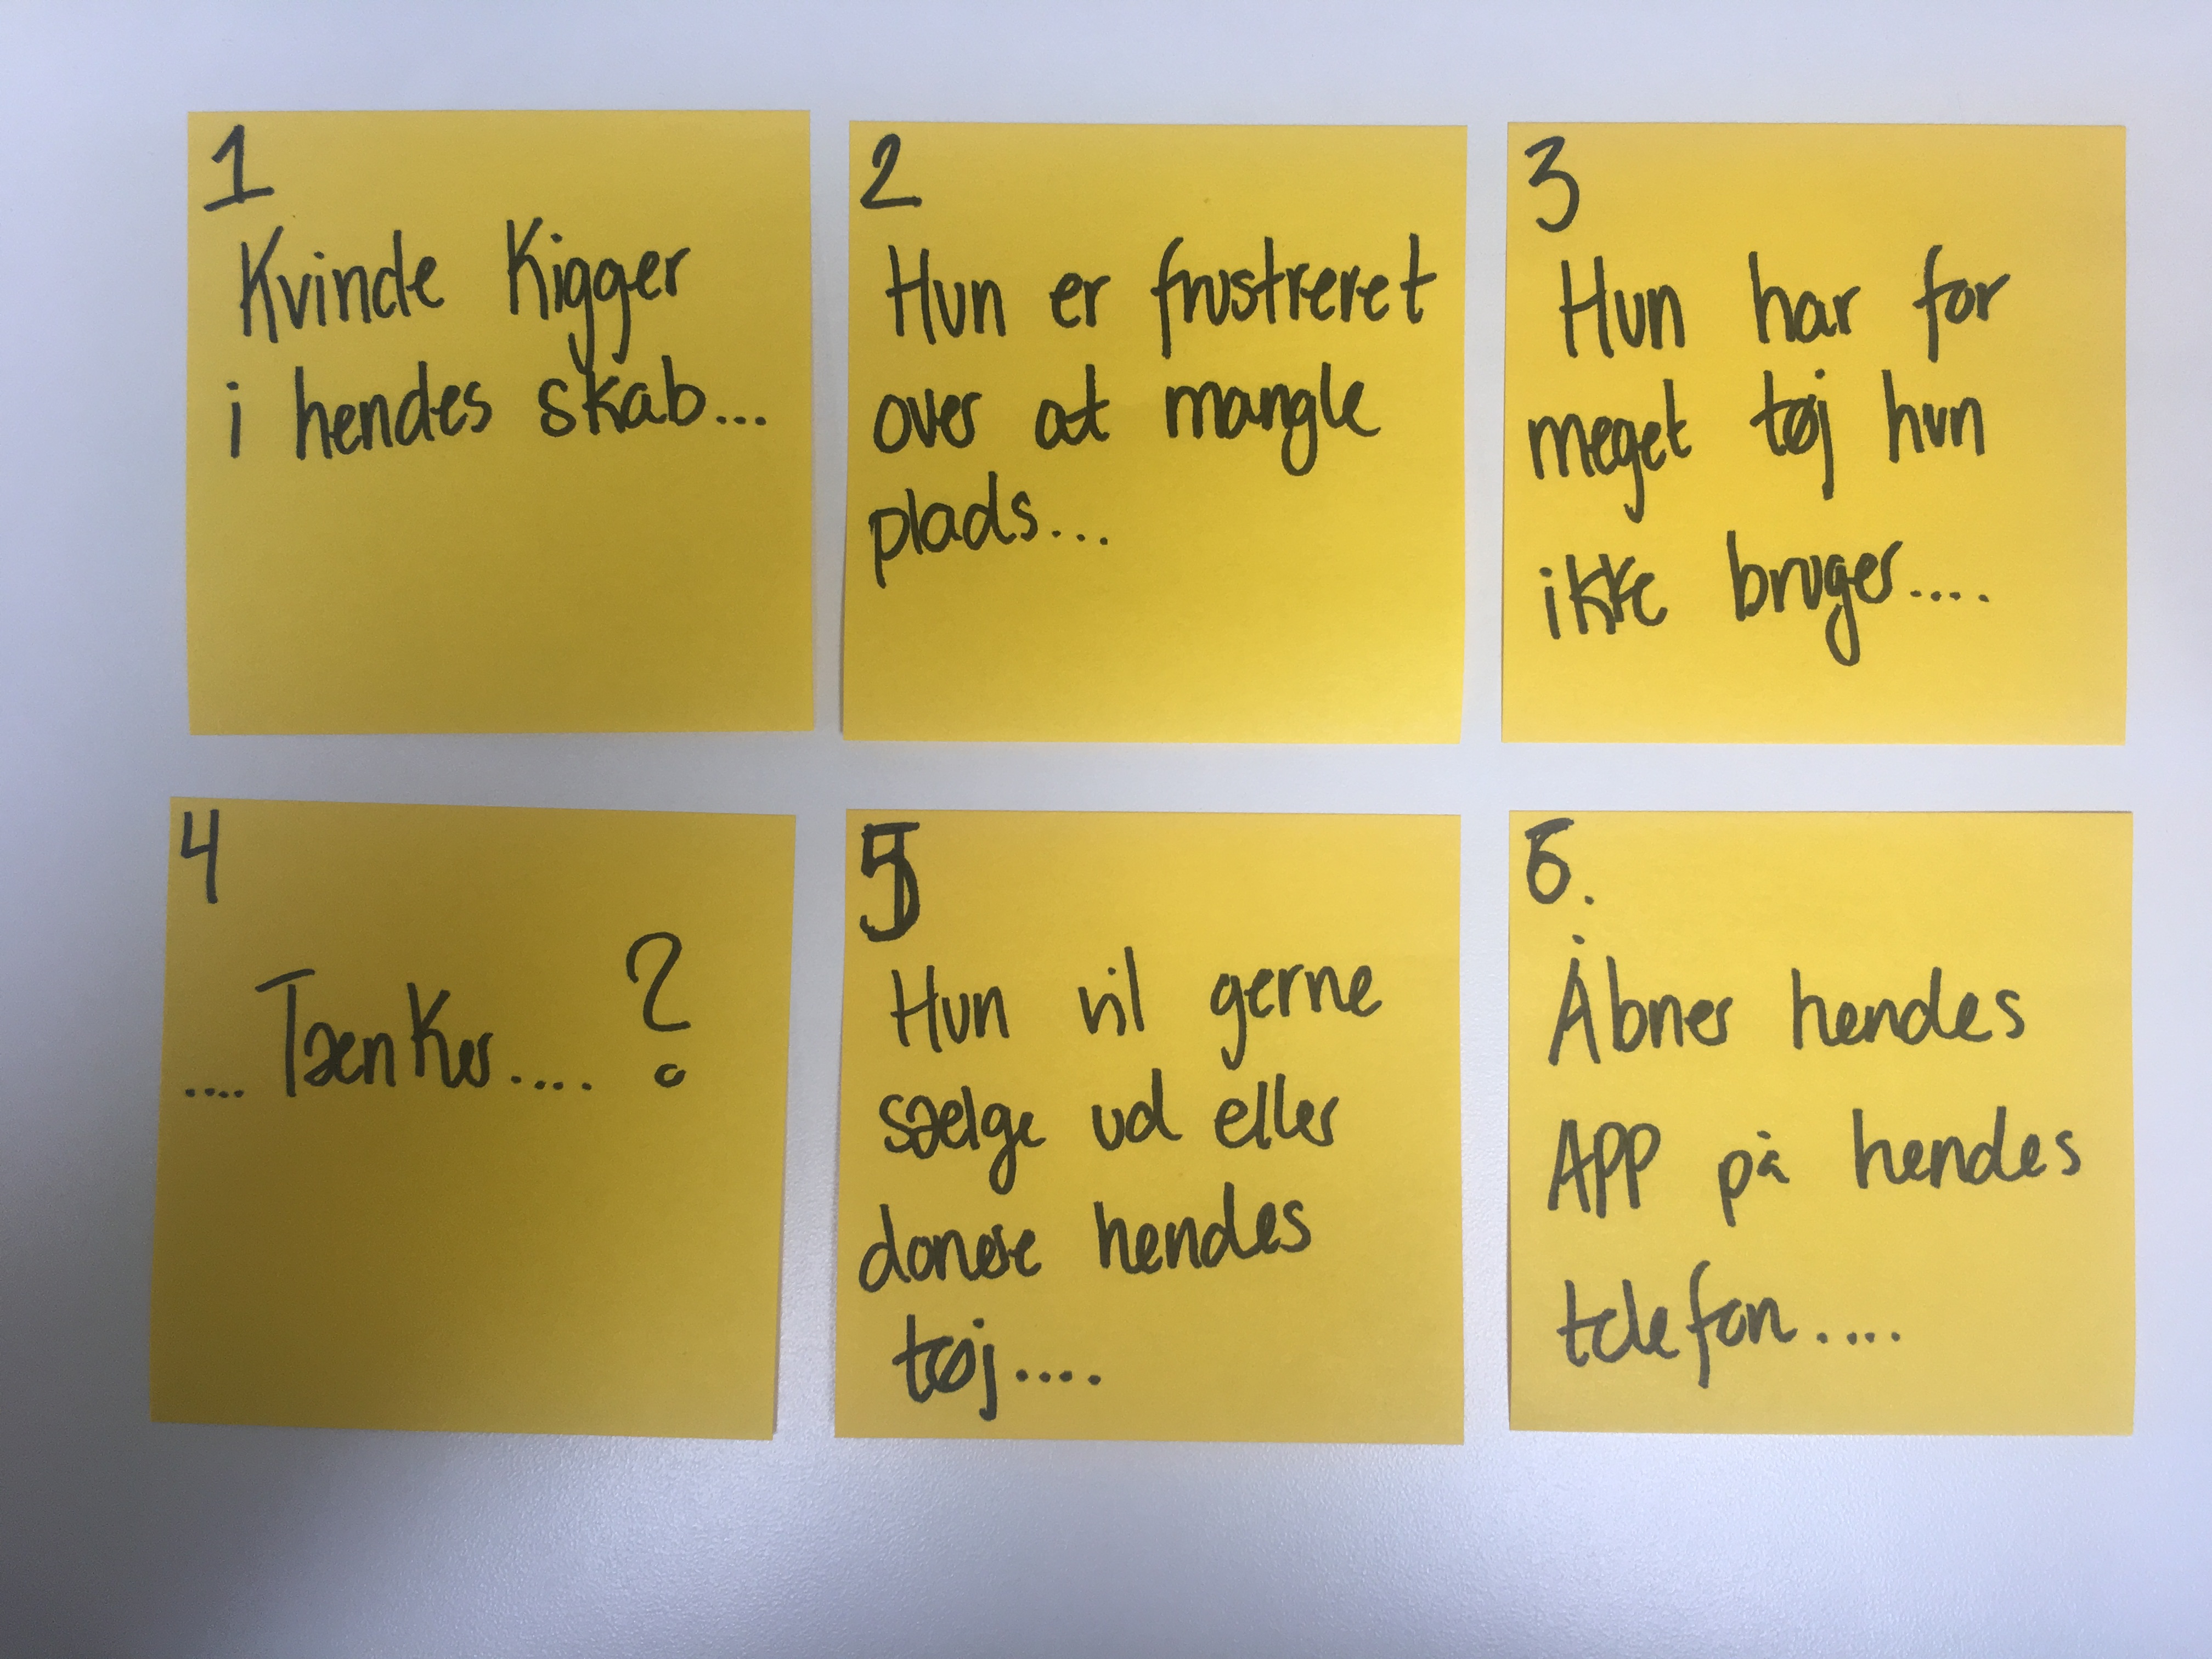 1
Kvinde Kigger
i hendes skab...
2
Hun er frustreret
over at mangle
plads...
3
Hun har for
meget tøj hun
ikke bruger....
4
?
.... Tænker....
5
Hun vil gerne
sælge ud eller
donere hendes
tøj....
6.
Åbner hendes
APP på hendes
telefon....